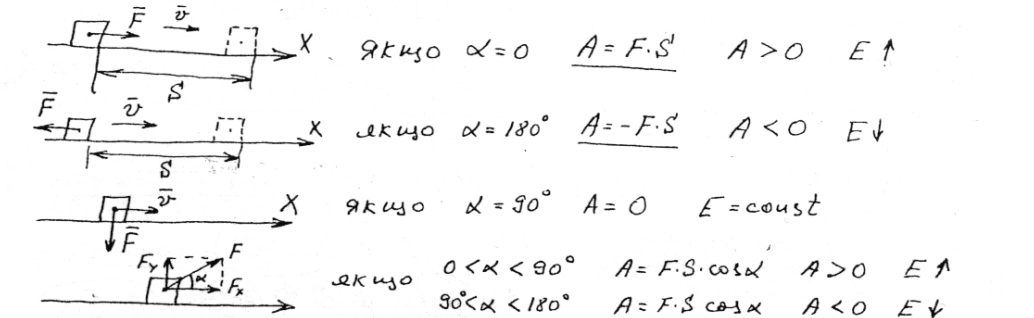 F̅ v̅ X S якщо α = 0 A = F·S A > 0 E ↑
F̅ v̅ X S якщо α = 180° A = -F·S A < 0 E ↓
v̅ F̅ X якщо α = 90° A = 0 E = const
F_y F α F_x якщо 0 < α < 90° A = F·S·cosα A > 0 E ↑
90° < α < 180° A = F·S cosα A < 0 E ↓